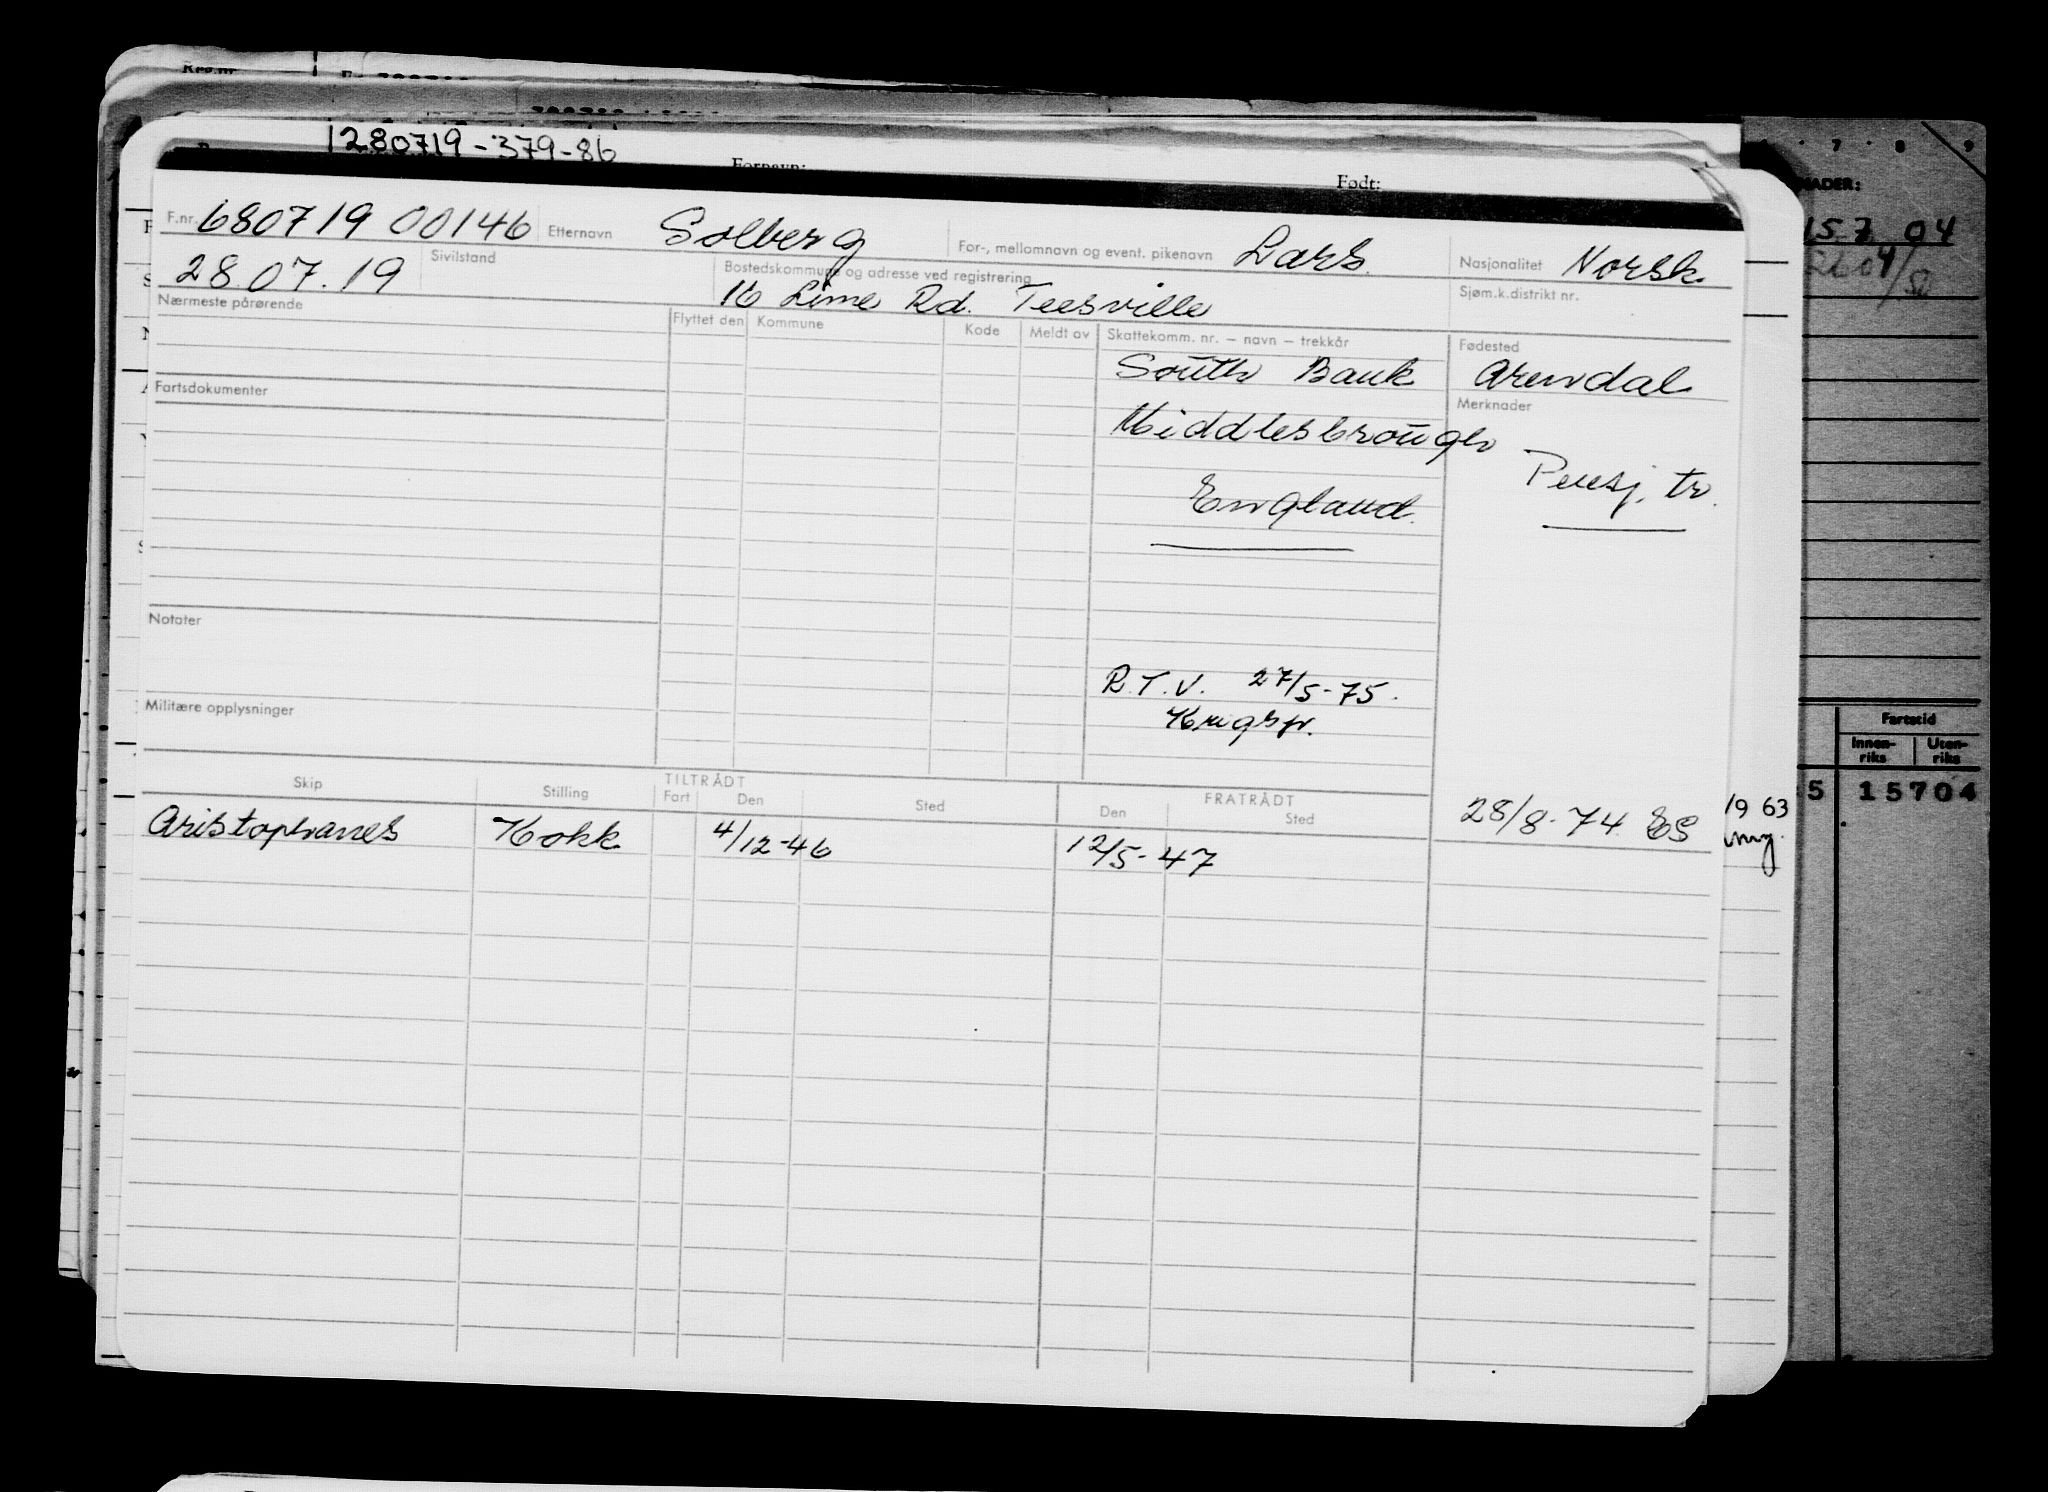 1280719-379-86
Fornavn:
Født:
F.nr. 680719 00146 Etternavn Solberg For-, mellomnavn og event. pikenavn Lars Nasjonalitet Norsk
28.07.19 Sivilstand Bostedskommune og adresse ved registrering 16 Lime Rd. Teesville Sjøm.k.distrikt nr.
Nærmeste pårørende Flyttet den Kommune Kode Meldt av Skattekomm. nr. – navn – trekkår Fødested
South Bank Arendal
Fartsdokumenter Merknader
Middlesbrough
Pensj. tr.
England
Notater
R.T.V. 27/5-75.
Krigsfr.
Militære opplysninger
Skip Stilling TILTRÅDT Fart Den Sted FRATRÅDT Den Sted
28/8-74 ES
Aristophanes Kokk 4/12-46 12/5-47
7 8 9
15.7 04
Fartstid
Innen-riks Uten-riks
5 15704
19 63